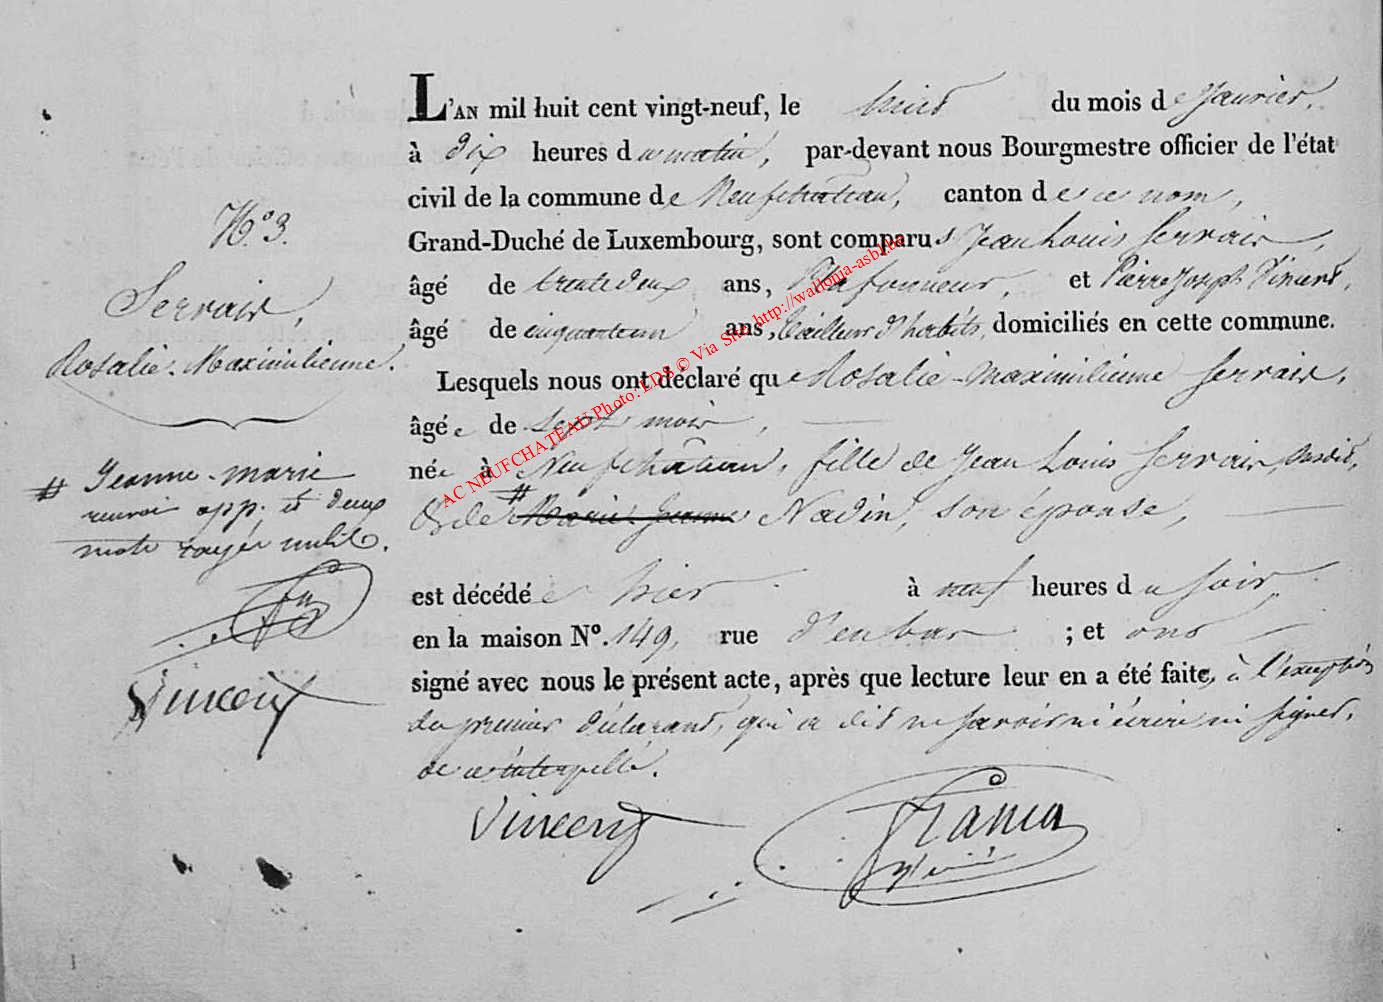 L'AN mil huit cent vingt-neuf, le huit du mois de Janvier,
à dix heures du matin, par-devant nous Bourgmestre officier de l'état
civil de la commune de Neufchateau, canton de ce nom,
Grand-Duché de Luxembourg, sont comparus Jean Louis Servais,
âgé de trente deux ans, Plafonneur, et Pierre Joseph Vincent,
âgé de cinquante un ans, tailleur d'habits, domiciliés en cette commune.
Lesquels nous ont déclaré que Rosalie-Maximilienne Servais,
âgée de sept mois,
née à Neufchâteau, fille de Jean Louis Servais susdit,
& de # Marie Jeanne Nadin, son épouse,
est décédée hier à neuf heures du soir,
en la maison Nº. 149, rue d'en bas ; et ont
signé avec nous le présent acte, après que lecture leur en a été faite, à l'exception
du premier déclarant, qui a dit ne savoir ni écrire ni signer,
de ce interpellé.
Vincent
AC NEUFCHATEAU Photo: LDS © Via Site http://wallonia-asbl.be
Nº 3.
Servais,
Rosalie-Maximilienne.
# Jeanne-marie
renvoi app. et deux
mots rayés nuls.
Vincent